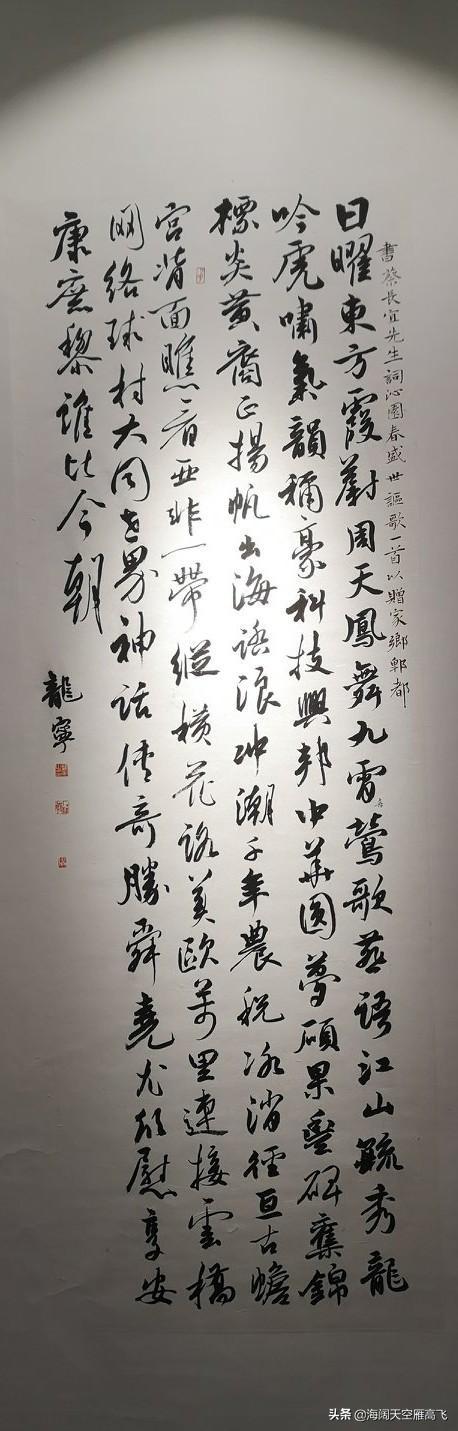 書蔡長宜先生詞沁園春盛世謳歌一首以贈家鄉郫都
日曜東方霞蔚周天鳳舞九霄鶯歌燕語江山毓秀龍
吟虎嘯氣韻稱豪科技興邦中華圓夢碩果豐碑奪錦
標炎黃裔正揚帆出海浪沖潮千年農税冰消徑亘古蟾
宮背面瞧看亞非一帶縱橫花路美歐萬里連接雲橋
网络球村大同世界神话传奇勝舜堯尤欣慰享安
康庶黎谁比今朝
龍寧
头条 @海阔天空雁高飞